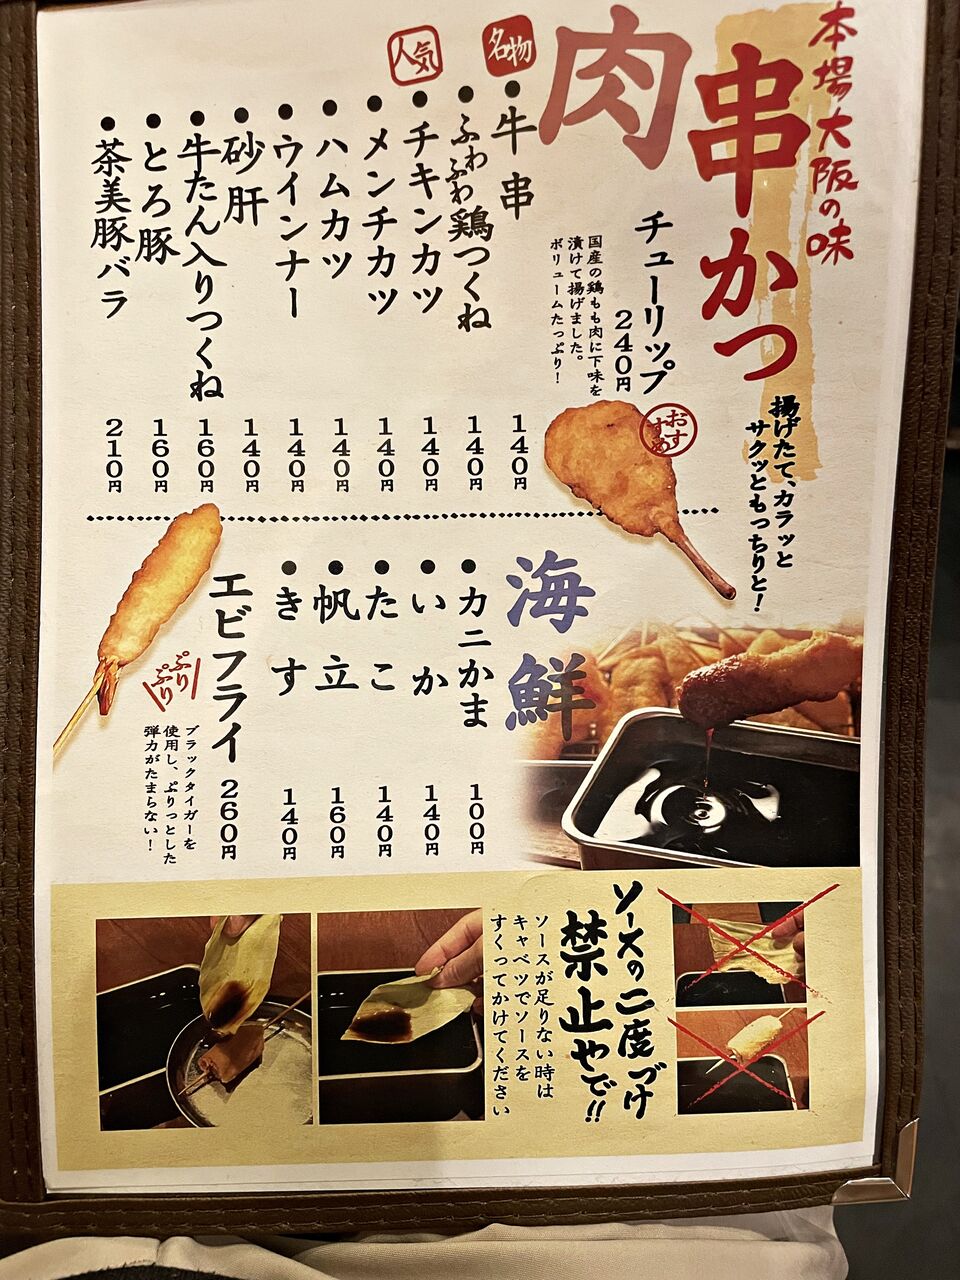 本場大阪の味
串かつ
揚げたて、カラッと
サクッともっちりと!
肉
チューリップ
240円
国産の鶏もも肉に下味を
漬けて揚げました。
ボリュームたっぷり!
おすすめ
名物
牛串 140円
ふわふわ鶏つくね 140円
人気
チキンカツ 140円
メンチカツ 140円
ハムカツ 140円
ウインナー 140円
砂肝 140円
牛たん入りつくね 160円
とろ豚 160円
茶美豚バラ 210円
海鮮
カニかま 100円
いか 140円
たこ 140円
帆立 160円
きす 140円
エビフライ 260円
ぷりぷり
ブラックタイガーを
使用し、ぷりっとした
弾力がたまらない!
ソースの二度づけ
禁止やで!!
ソースが足りない時は
キャベツでソースを
すくってかけてください